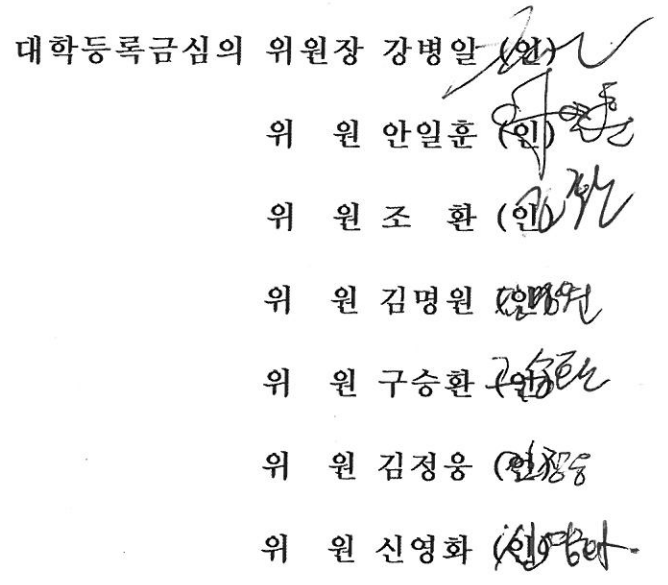 대학등록금심의 위원장 강병일 (인)
위 원 안일훈 (인)
위 원 조 환 (인)
위 원 김명원 (인)
위 원 구승환 (인)
위 원 김정웅 (인)
위 원 신영화 (인)